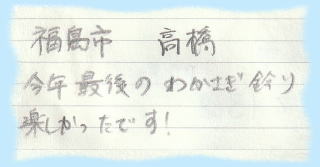 福島市　高橋
今年最後のわかさぎ釣り
楽しかったです!